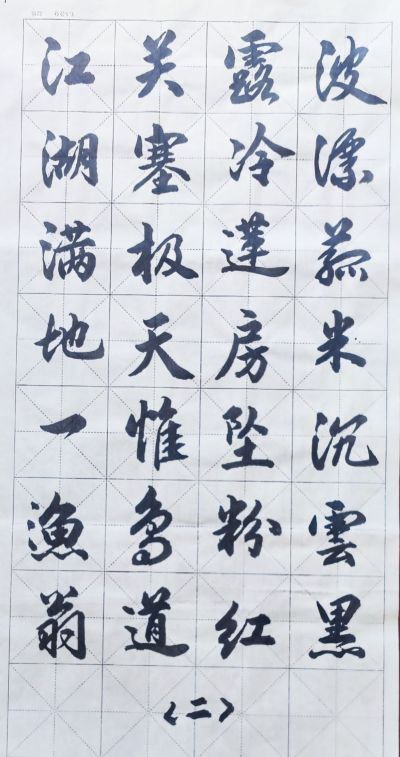 波漂菰米沉雲黑
露冷蓮房坠粉红
关塞极天惟鸟道
江湖满地一漁翁
〈二〉